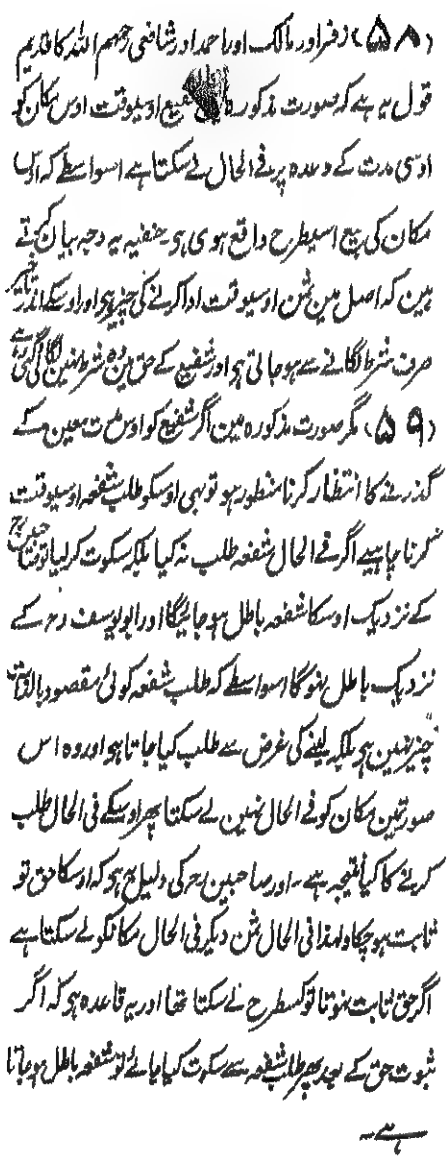 (۵۸) زفر اور مالک اور احمد اور شافعی رحمہم اللہ کا قدیم
قول یہ ہے کہ صورت مذکورہ میں شفیع اوسیوقت اوس مکان کو
اوسی مدت کے وعدہ پر فے الحال لے سکتا ہے اسواسطے کہ اوس
مکان کی بیع اسیطرح واقع ہوی ہو۔ حنفیہ یہ وجہ بیان کرتے
ہین کہ اصل مین ثمن اوسیوقت ادا کرنے کی چیز ہو اور اوسکے اندر تاخیر
صرف شرط لگانے سے ہو جاتی ہو اور شفیع کے حق مین وہ شرط نہین لگائی گئی ہے
(۵۹) مگر صورت مذکورہ مین اگر شفیع کو اوس مدت معین کے
گذرنے کا انتظار کرنا منظور ہو تو بھی اوسکو طلب شفعہ اوسیوقت
کرنا چاہیے اگر فے الحال شفعہ طلب نہ کیا بلکہ سکوت کر لیا تو صاحبین رح
کے نزدیک اوسکا شفعہ باطل ہو جائیگا اور ابو یوسف رح کے
نزدیک باطل نہوگا اسواسطے کہ طلب شفعہ کوئی مقصود بالذات
چیز نہین ہو بلکہ لینے کی غرض سے طلب کیا جاتا ہو اور وہ اس
صورتمین مکان کو فے الحال نہین لے سکتا پھر اوسکے فی الحال طلب
کرنے کا کیا نتیجہ ہے۔ اور صاحبین رح کی دلیل یہ ہو کہ اوسکا حق تو
ثابت ہو چکا ولہذا فی الحال ثمن دیکر فی الحال مکانکو لے سکتا ہے
اگر حق ثابت نہوتا تو کسطرح لے سکتا تھا اور یہ قاعدہ ہو کہ اگر
ثبوت حق کے بعد پھر طلب شفعہ سے سکوت کیا جائے تو شفعہ باطل ہو جاتا
ہے۔